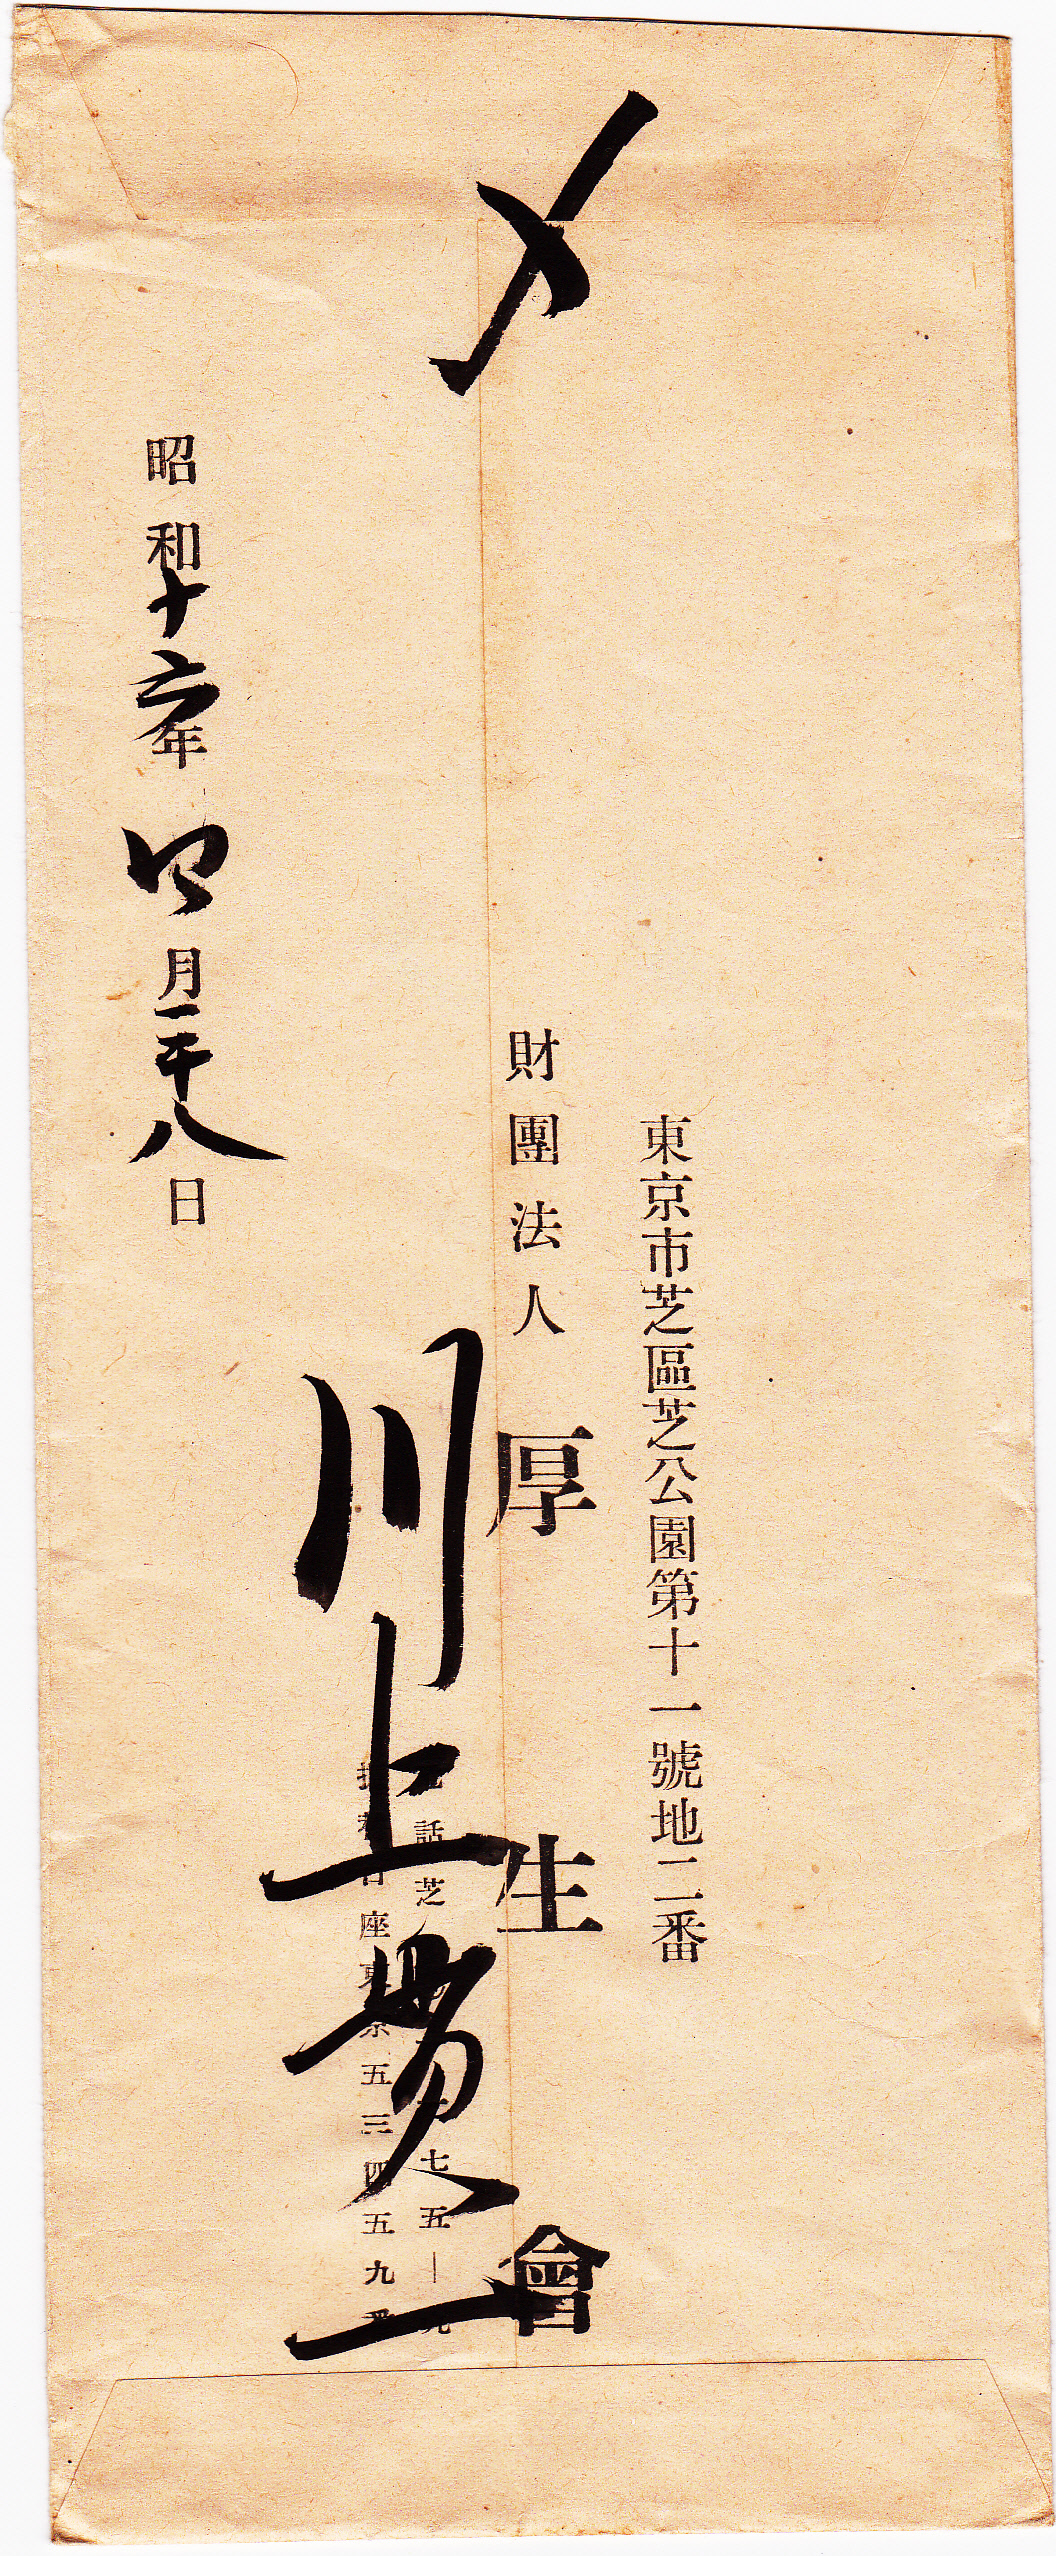 〆
東京市芝區芝公園第十一號地二番
財團法人 厚生會
話芝 七五―九
座東京五三四五九番
川上 一
昭和十六年四月二十八日